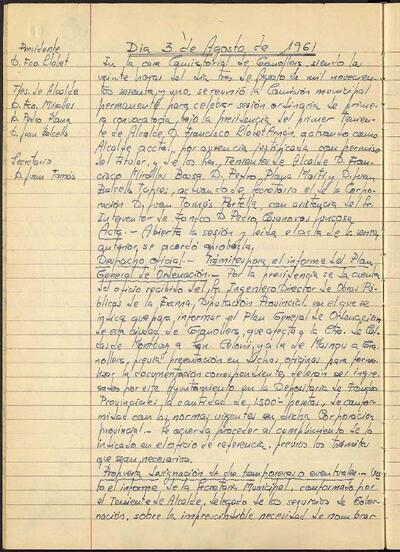 Dia 3 de Agosto de 1961
Presidente
D. Fco. Llobet
Ttes. de Alcalde
D. Fco. Miralles
D. Pedro Plana
D. Juan Balcells
Secretario
D. Juan Tomás
En la casa Consistorial de Granollers, siendo las
veinte horas del dia tres de Agosto de mil novecien-
tos sesenta y uno, se reunió la Comisión municipal
permanente para celebrar sesión ordinaria de prime-
ra convocatoria, bajo la presidencia del primer Tenien-
te de Alcalde, D. Francisco Llobet, actuando como
Alcalde acctal, por ausencia justificada con permiso
del titular, y de los Sres. Tenientes de Alcalde D. Fran-
cisco Miralles D. Pedro, Plana Martí y D. Juan
Balcells actuando de secretario el de la Corpo-
ración D. Juan Tomás Portella, con asistencia del Sr.
Interventor de Fondos D. Pedro, Casanovas
Acta.- Abierta la sesión y leida el acta de la sesión
anterior, se acordó aprobarla.
Despacho oficial.- Trámites para el informe del Plan
General de Ordenación.- Por la presidencia se da cuenta
del oficio recibido del Sr. Ingeniero Director de Obras Pú-
blicas de la Excma. Diputación Provincial, en el que se
indica que para informar el Plan General de Ordenación
de esta ciudad de Granollers, que afecta a la Ctra. de Cal-
das de Montbuy a San Celoni, y a la de Masnou a Gra-
nollers, previa presentación en dichas oficinas para forma-
lizar la documentación correspondiente, deberán ser ingre-
sadas por este Ayuntamiento en la Depositaria de Fondos
Provinciales la cantidad de 1.500 pesetas, de confor-
midad con las normas vigentes en dicha Corporación
provincial.- Se acuerda proceder al cumplimiento de lo
indicado en el oficio de referencia, previos los trámites
que sean necesarios.
Propuesta designación de dos temporeros o eventuales.- Vis-
to el informe de la Secretaría Municipal, conformado por
el Teniente de Alcalde, delegado de los servicios de Gober-
nación, sobre la imprescindible necesidad de nombrar